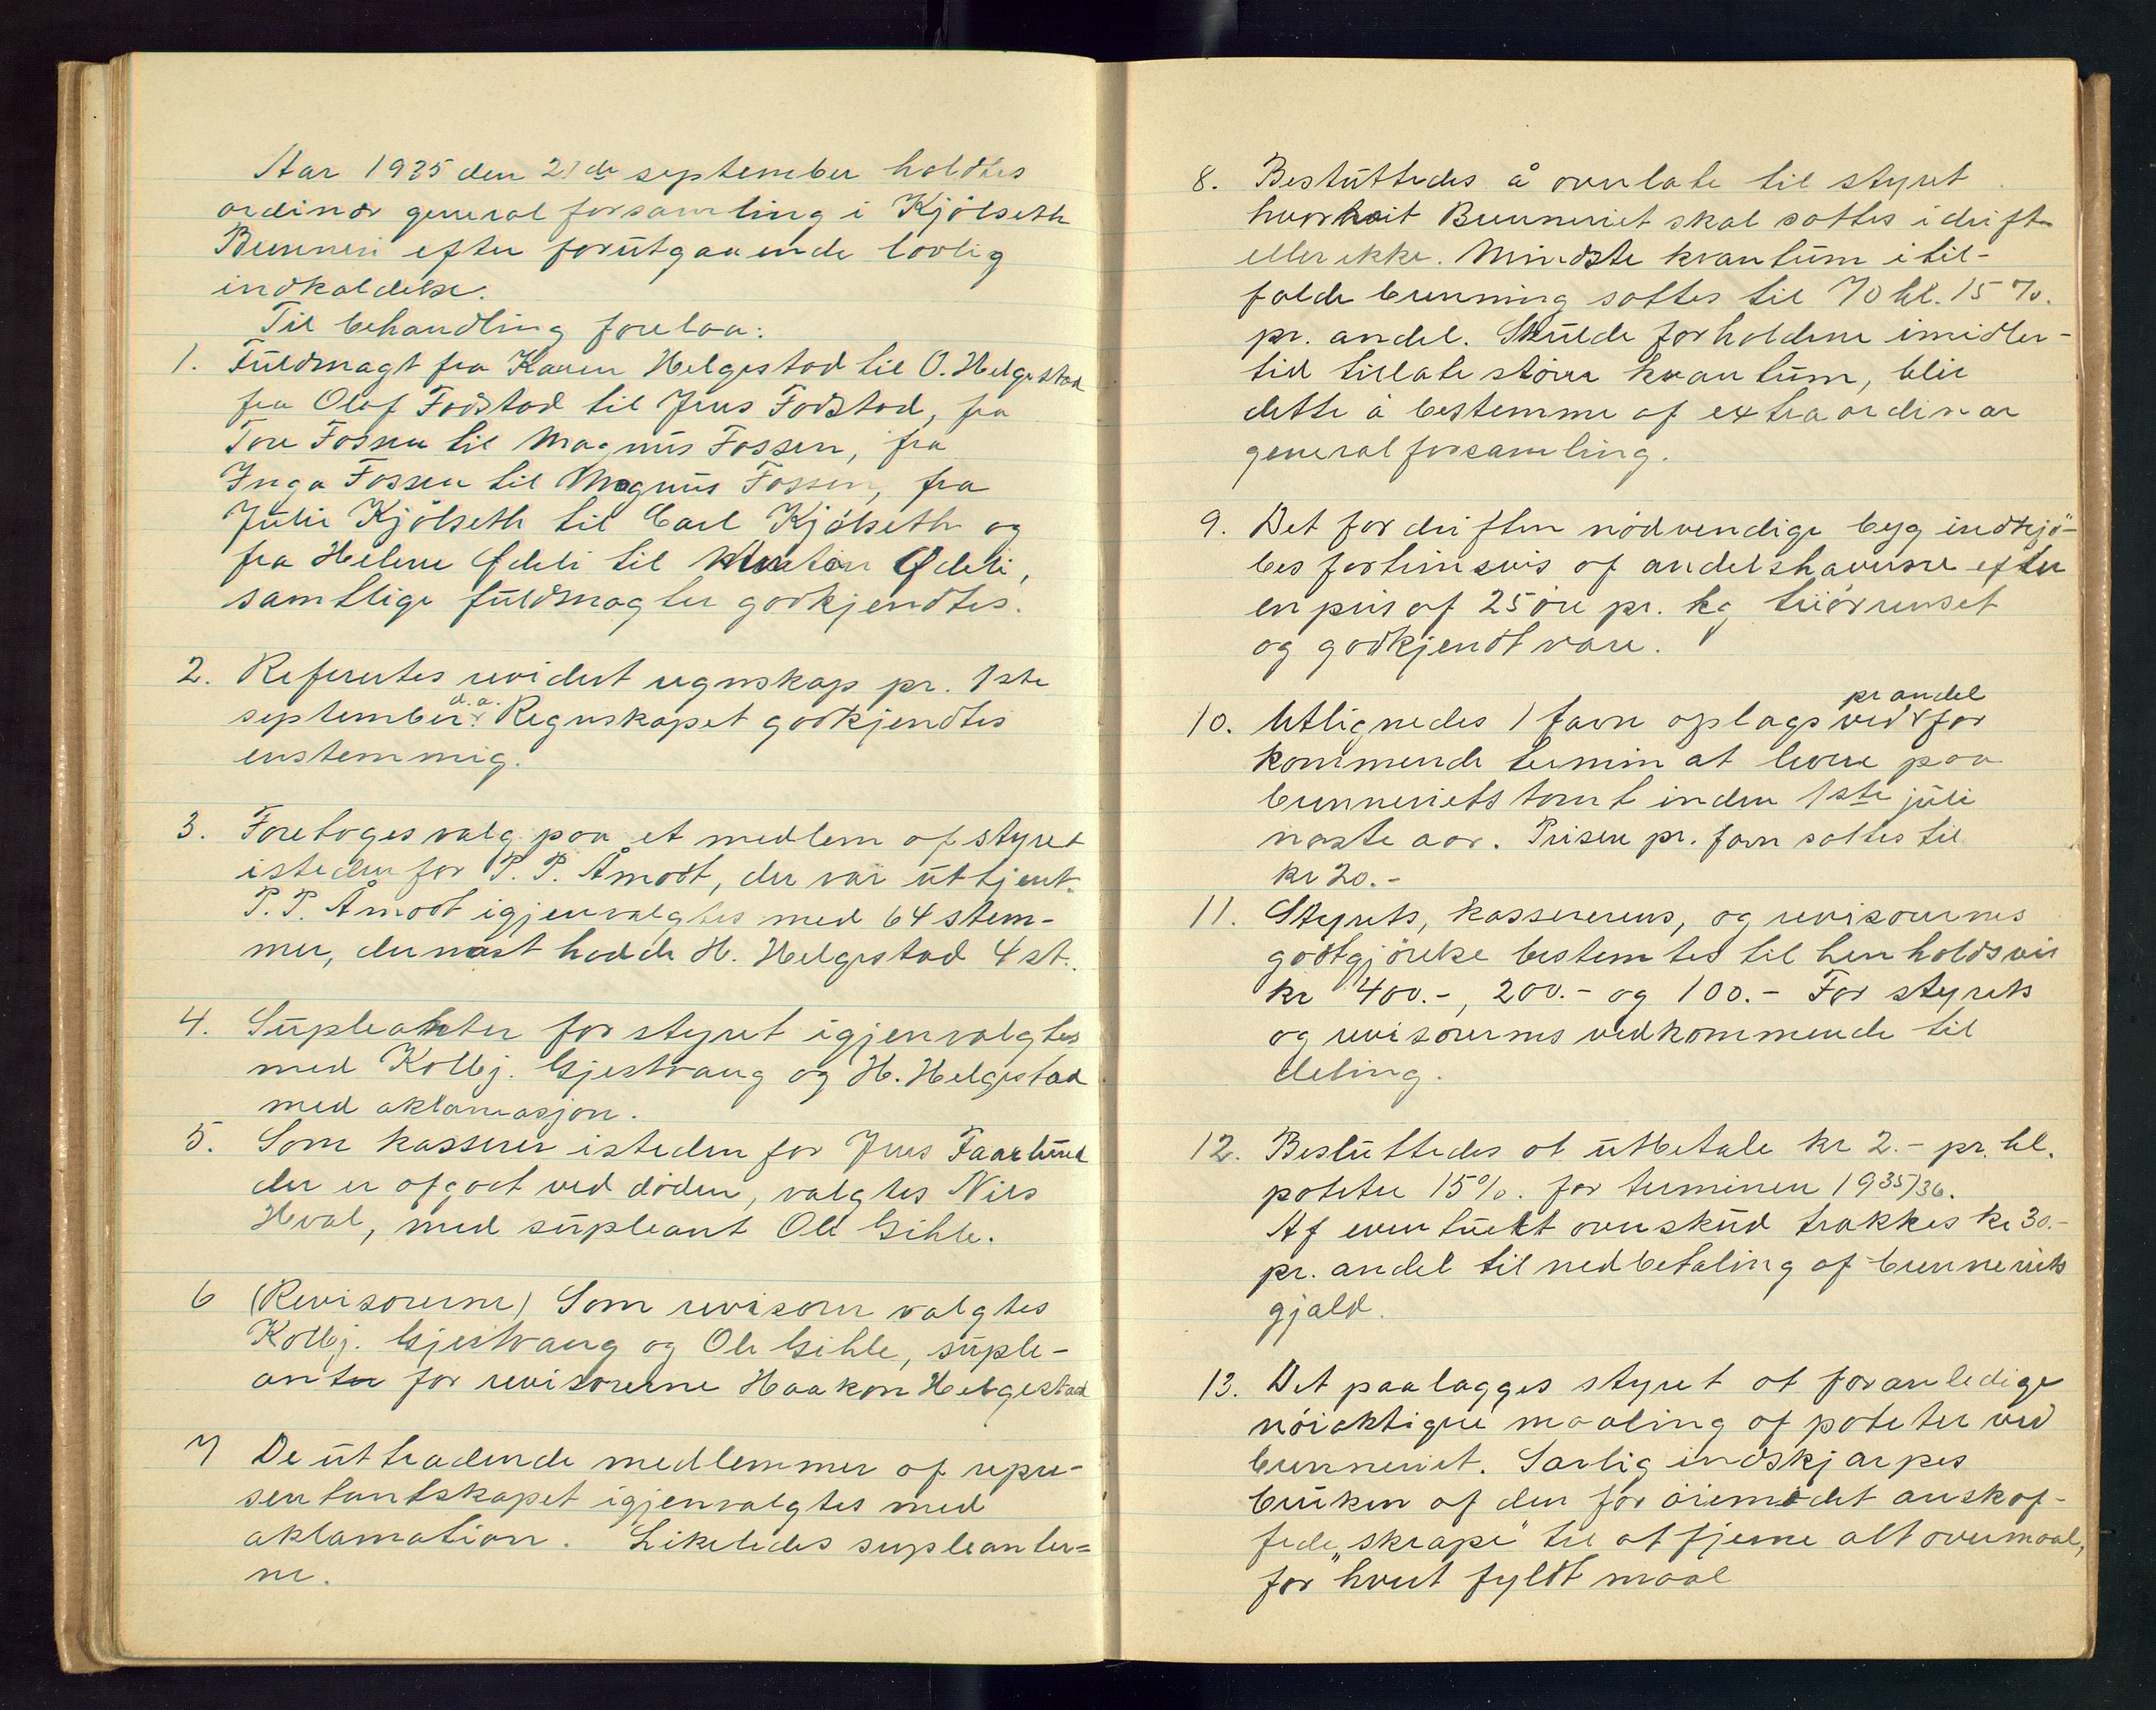 Aar 1935 den 21de september holdtes
ordinær generalforsamling i Kjölseth
Brenneri efter forutgaaende lovlig
indkaldelse.
Til behandling forelaa:
1. Fuldmagt fra Karen Helgestad til O. Helgestad
fra Olaf Fodstad til Jens Fodstad, fra
Tore Fossen til Magnus Fossen, fra
Inga Fossen til Magnus Fossen, fra
Julie Kjölseth til Carl Kjölseth og
fra Helene Ødeli til Ødeli,
samtlige fuldmagter godkjendtes.
2. Refereertes revidert regnskap pr. 1ste
september d.a. Regnskapet godkjendtes
enstemmig.
3. Foretoges valg paa et medlem af styret
isteden for P. P. Åmodt, der var uttjent.
P. P. Åmodt igjenvalgtes med 64 stem-
mer, dernæst hadde H. Helgestad 4 st.
4. Supleanter for styret igjenvalgtes
med Kolbj. Gjestvang og H. Helgestad
med aklamasjon.
5. Som kasserer isteden for Jens Faarlund
der er afgaat ved döden, valgtes Nils
Hval, med supleant Ole Gihle.
6 (Revisorerne) Som revisorer valgtes
Kolbj. Gjestvang og Ole Gihle, suple-
anter for revisorerne Haakon Helgestad
7 De uttrædende medlemmer af repre-
sentantskapet igjenvalgtes med
aklamation. Likeledes supleanter=
ne.
8. Besluttedes å overlate til styret
hvorvit Brenneriet skal sættes i drift
eller ikke. Mindste kvantum i til-
fælde brenning sættes til 70 hl. 15 %.
pr. andel. Skulde forholdene imidler-
tid tillate större kvantum, blir
dette å bestemme af extraordinær
generalforsamling.
9. Det for driften nödvendige byg indkjö-
bes fortrinsvis af andelshaverne efter
en pris af 25 öre pr. kg tör renset
og godkjendt vare.
10. Utlignedes 1 favn oplagsved pr andel for
kommende termin at levere paa
brenneriets tomt inden 1ste juli
næste aar. Prisen pr. favn sættes til
kr 20.-
11. Styrets, kassererens, og revisorernes
godtgjörelse bestemtes til henholdsvis
kr 400.-, 200.- og 100.- For styrets
og revisorernes vedkommende til
deling.
12. Besluttedes at utbetale kr 2.- pr. hl.
poteter 15%. for terminen 1935/36.
Af eventuelt overskud trækkes kr 30.-
pr. andel til nedbetaling af brenneriets
gjæld.
13. Det paalægges styret at foranledige
nöiaktigere maaling af poteter ved
brenneriet. Særlig indskjærpes
bruken af den for öiemedet anskaf-
fede „skrape" til at fjerne alt overmaal,
for hvert fyldt maal